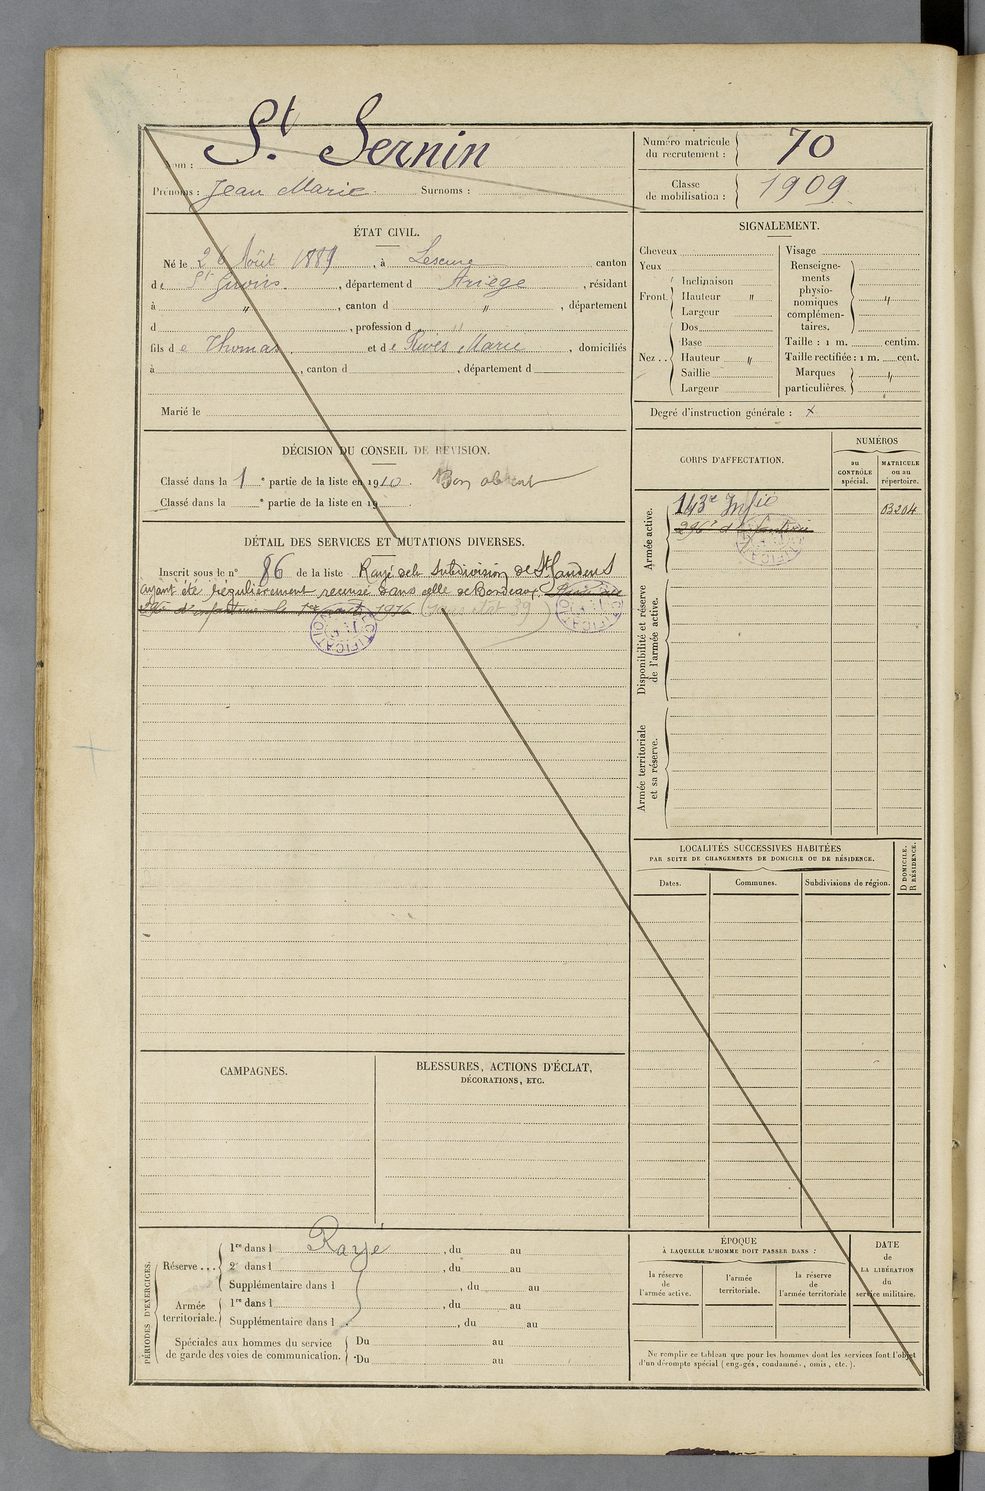 Nom : St. Sernin
Prénoms : Jean Marie Surnoms :
Numéro matricule du recrutement : 70
Classe de mobilisation : 1909
ÉTAT CIVIL.
Né le 26 Août 1889, à Lescure canton
de St Girons, département d Ariège, résidant
à " , canton d " , département
d , profession d "
fils de Thomas et de Rivès Marie, domiciliés
à , canton d , département d
Marié le
SIGNALEMENT.
Cheveux
Yeux
Front.
Inclinaison
Hauteur "
Largeur
Nez . .
Dos
Base
Hauteur "
Saillie
Largeur
Visage
Renseignements physionomiques complémentaires. "
Taille : 1 m. centim.
Taille rectifiée : 1 m. cent.
Marques particulières. "
Degré d'instruction générale : x
DÉCISION DU CONSEIL DE RÉVISION.
Classé dans la 1e partie de la liste en 1910. Bon absent
Classé dans la e partie de la liste en 19 .
DÉTAIL DES SERVICES ET MUTATIONS DIVERSES.
Inscrit sous le n° 86 de la liste Rayé de la subdivision de St Gaudens
ayant été régulièrement recensé dans celle de Bordeaux.
296e d'infanterie le 1er août 1916
CORPS D'AFFECTATION.
NUMÉROS
au CONTRÔLE spécial.
MATRICULE ou au répertoire.
Armée active.
143e Inf ie 03204
296e d'infanterie
Disponibilité et réserve de l'armée active.
Armée territoriale et sa réserve.
LOCALITÉS SUCCESSIVES HABITÉES
PAR SUITE DE CHANGEMENTS DE DOMICILE OU DE RÉSIDENCE.
Dates.
Communes.
Subdivisions de région.
D DOMICILE.
R RÉSIDENCE.
CAMPAGNES.
BLESSURES, ACTIONS D'ÉCLAT,
DÉCORATIONS, ETC.
PÉRIODES D'EXERCICES.
Réserve . . .
1re dans l Rayé , du au
2e dans l , du au
Supplémentaire dans l , du au
Armée territoriale.
1re dans l , du au
Supplémentaire dans l , du au
Spéciales aux hommes du service de garde des voies de communication.
Du au
Du au
ÉPOQUE
À LAQUELLE L'HOMME DOIT PASSER DANS :
la réserve de l'armée active.
l'armée territoriale.
la réserve de l'armée territoriale
DATE de LA LIBÉRATION du service militaire.
Ne remplir ce tableau que pour les hommes dont les services font l'objet
d'un décompte spécial (engagés, condamnés, omis, etc.).